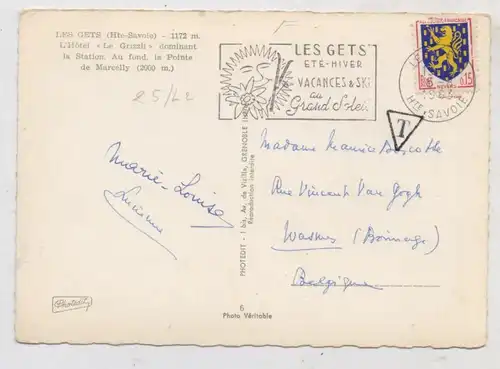 LES GETS (Hte-Savoie) - 1172 m.
L'Hôtel « Le Grizzli » dominant
la Station. Au fond, la Pointe
de Marcelly (2000 m.)
25/L2
LES GETS
ETE-HIVER
VACANCES & SKI
au
Grand Soleil
0,15
NEVERS
HTE-SAVOIE
T
Marie-Louise
Lucienne
PHOTEDIT - 1 bis, Av. de Vizille, GRENOBLE
Reproduction interdite
Madame Maurice
Rue Vincent Van Gogh
Wasmes (Borinage)
Belgique
Photedit
6
Photo Véritable